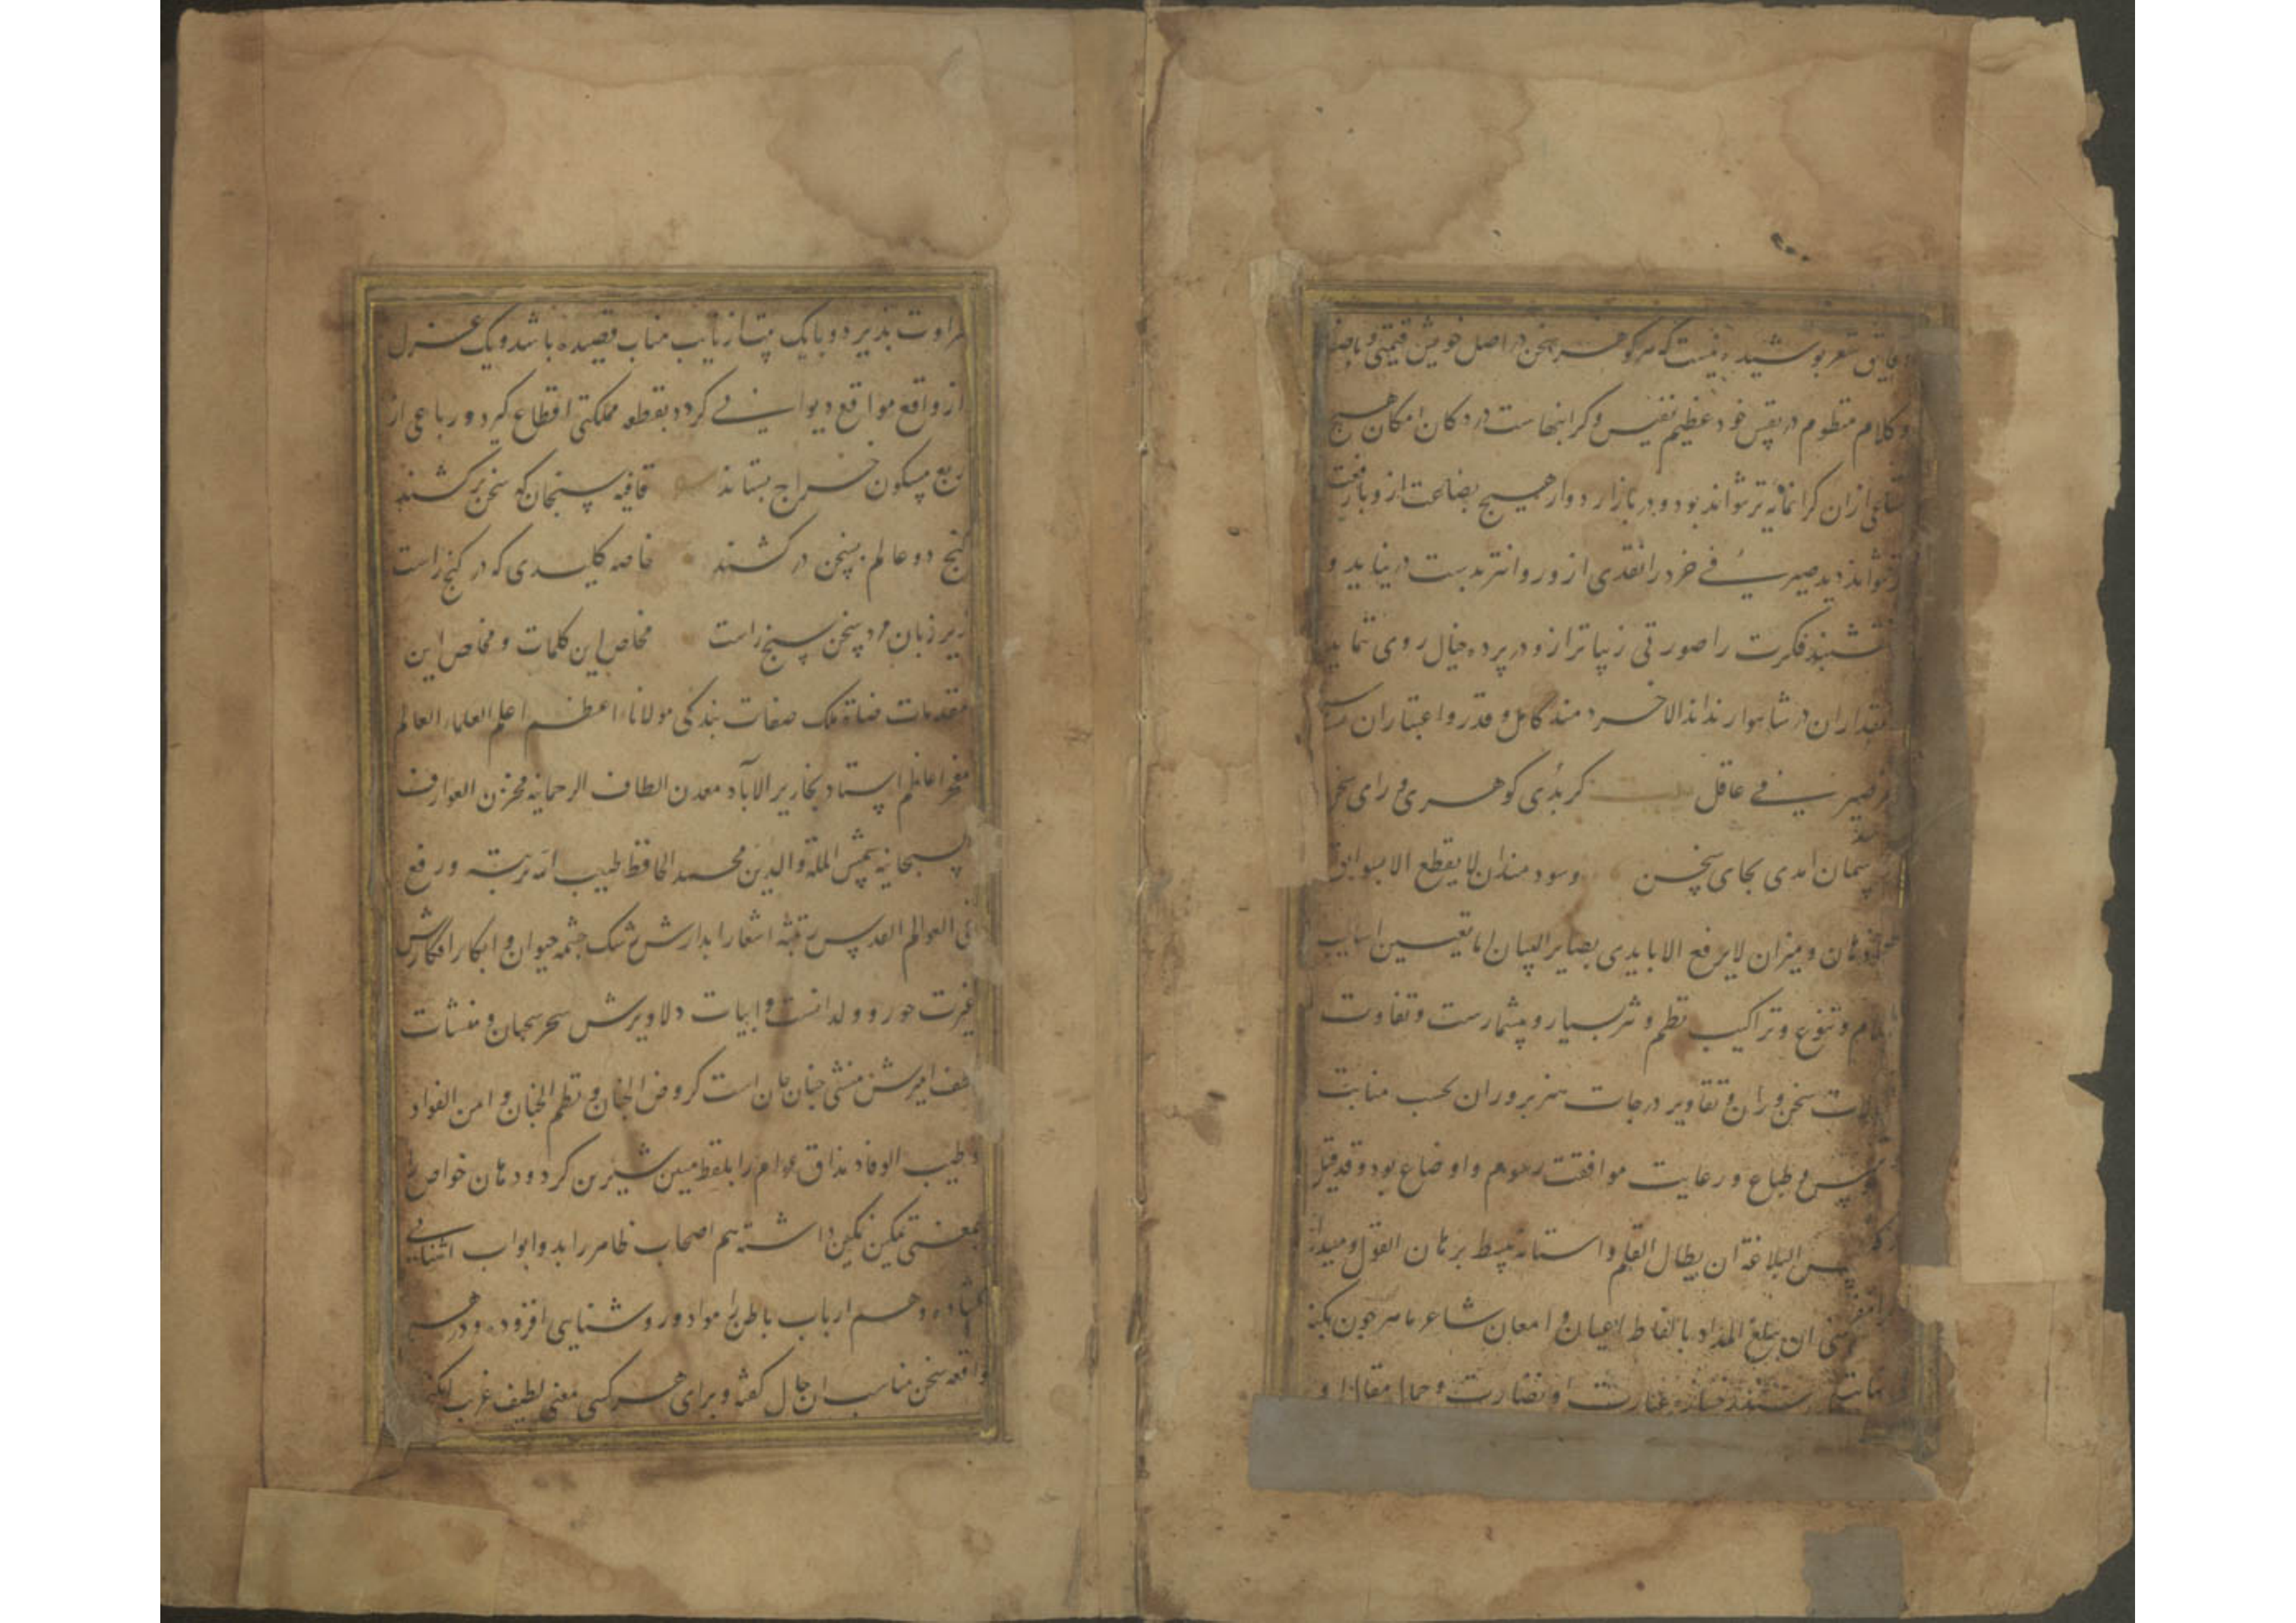 دقایق شعر پوشیده نیست که هر گوهر سخن در اصل خویش قیمتی و با صفا
و کلام منظوم در نفس خود عظیم نفیس و کرانبهاست در دکان امکان هیچ
متاعی از ان کرانمایه تر نتواند بود و در بازار دوار هیچ بضاعت از و با رفعت
نتواند دید صیرفی خرد را نقدی از و روانتر بدست در نیاید و
نقشبند فکرت را صورتی زیباتر از و در پرده خیال روی ننماید
مقدار ان در شاهوار نداند الا خردمند کامل و قدر و اعتبار ان
صیرفی عاقل کر بدی کوهری ورای سخن
امدی بجای سخن وسود میدان لا یقطع الا بسوابق
و میزان لا یرفع الا بایدی بصایر البیان اما تعیین اسالیب
کلام و تنوع و تراکیب نظم و نثر بسیار و بیشمارست و تفاوت
سخن وران و تفاوت درجات هنر پروران بحسب مناسبت
نفوس و طباع و رعایت موافقت رسوم و اوضاع بود و قد قیل
لیس البلاغة ان یطال القلم و اسنانه بسط برهان القول و میدان
ان یبلغ المداد بالفاظ اعیان و امعان شاعر ماهر چون بکنه
عبارت او نضارت و جمال مقال او
طراوت پذیرد و با یک بیت از نایب مناب قصیده باشد و یک غزل
از واقع مواقع دیوانی کردد بقطعه مملکتی اقطاع کیرد و رباعی از
ربع مسکون خراج ستاند قافیه سنجان که سخن برکشند
کنج دو عالم بسخن درکشند خاصه کلیدی که در کنج راست
زیر زبان مرد سخن سنج راست مخلص این کلمات و مخلص این
مقدمات ملک صفات بندکی مولانا اعظم اعلم العلماء العالم
مفخر اعاظم استاد نحاریر الاباد معدن الطاف الرحمانیه مخزن العوارف
السبحانیه شمس الملة والدین محمد الحافظ طیب الله تربته ورفع
فی العوالم القدس رتبته اشعار ابدارش رشک چشمه حیوان و ابکار افکارش
غیرت حور و ولدانست و ابیات دلاویزش سخر سحبان و منشات
لطف امیزش منشی جنان است کروض الجنان و نظم الجنان و امن الفواد
و طیب الوقاد مذاق عوام را بلفظ مبین شیرین کرد و دهان خواص را
بمعنی تمکین نمکین داشته هم اصحاب ظاهر را بدو ابواب اشنایی
کشاده و هم ارباب باطن را مواد و روشنایی افزوده و در هر
واقعه سخن مناسب ان حال کفته و برای هر کسی معنی لطیف غریب